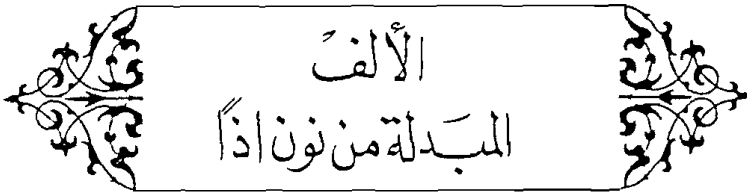 الألف
المبدلة من نون اذاً